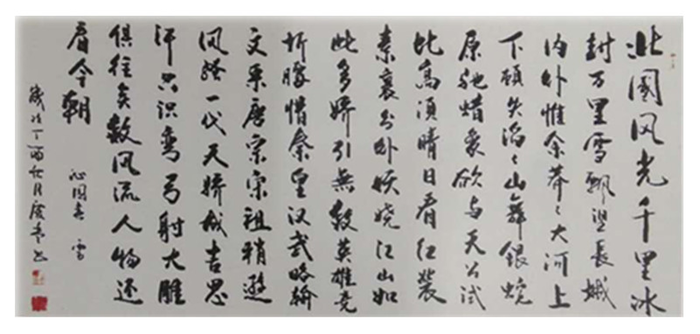 北國风光千里冰
封万里雪飘望长城
内外惟余莽々大河上
下顿失滔々山舞银蛇
原驰蜡象欲与天公试
比高须晴日看红装
素裹分外妖娆江山如
此多娇引無数英雄竞
折腰惜秦皇汉武略输
文采唐宗宋祖稍逊
风骚一代天骄成吉思
汗只识弯弓射大雕
俱往矣数风流人物还
看今朝
沁园春 雪
岁次丁酉